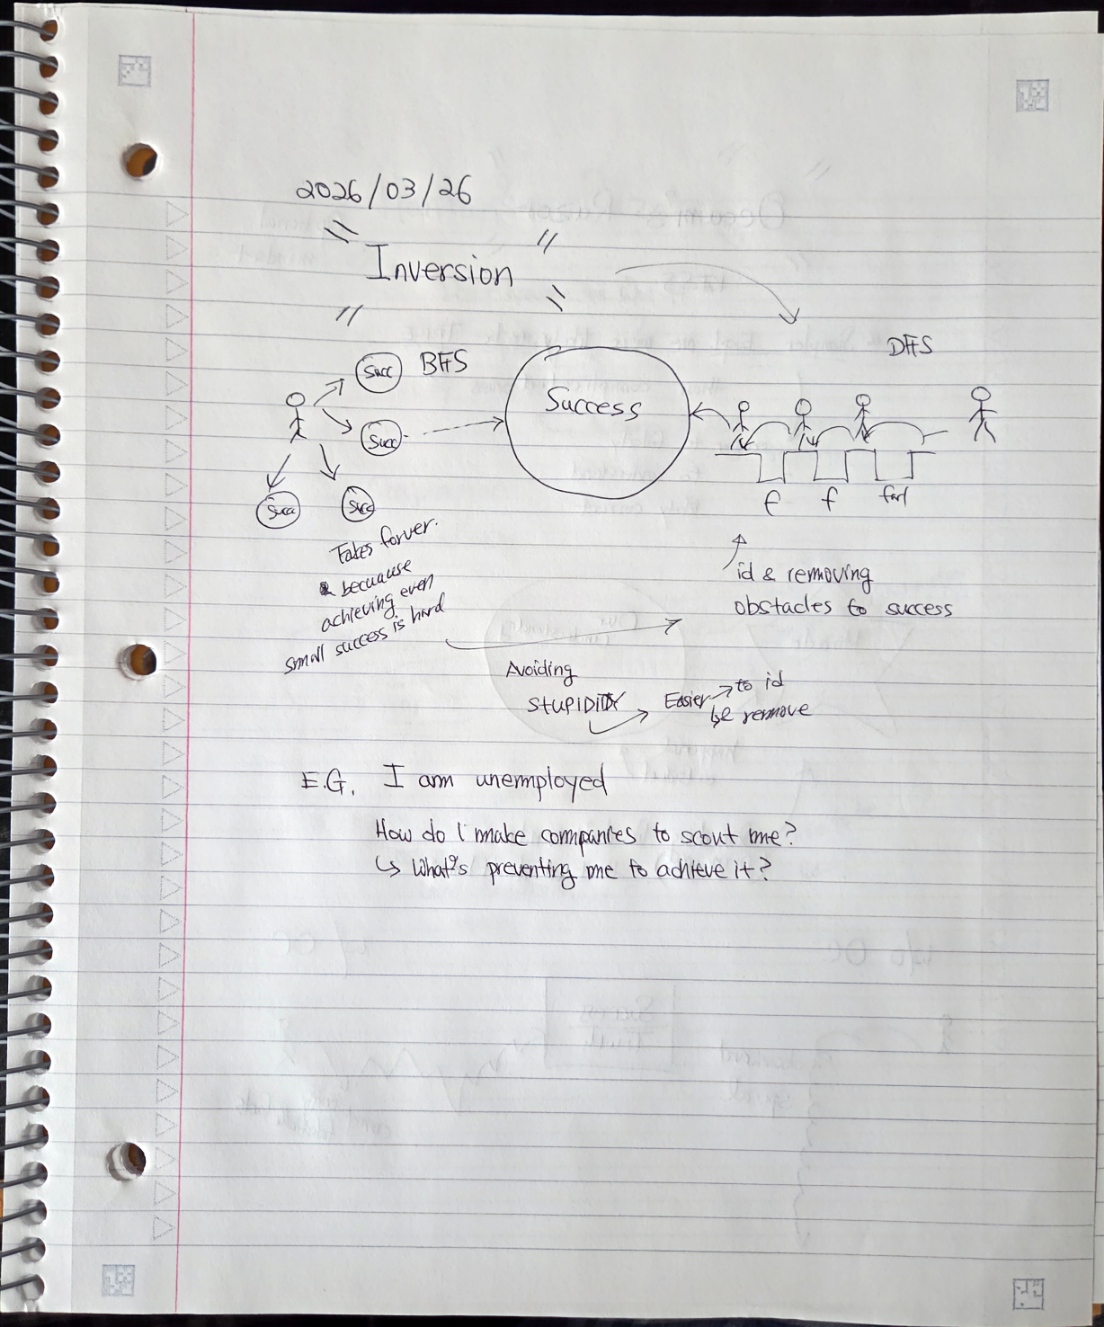 2026/03/26
Inversion
BFS
DFS
Succ
Succ
Succ
Succ
Success
f f fail
Takes forver.
becuause
achieving even
small success is hard
id & removing
obstacles to success
Avoiding
STUPIDITY
Easier → to id
& remove
E.G. I am unemployed
How do I make companies to scout me?
↳ What's preventing me to achieve it?